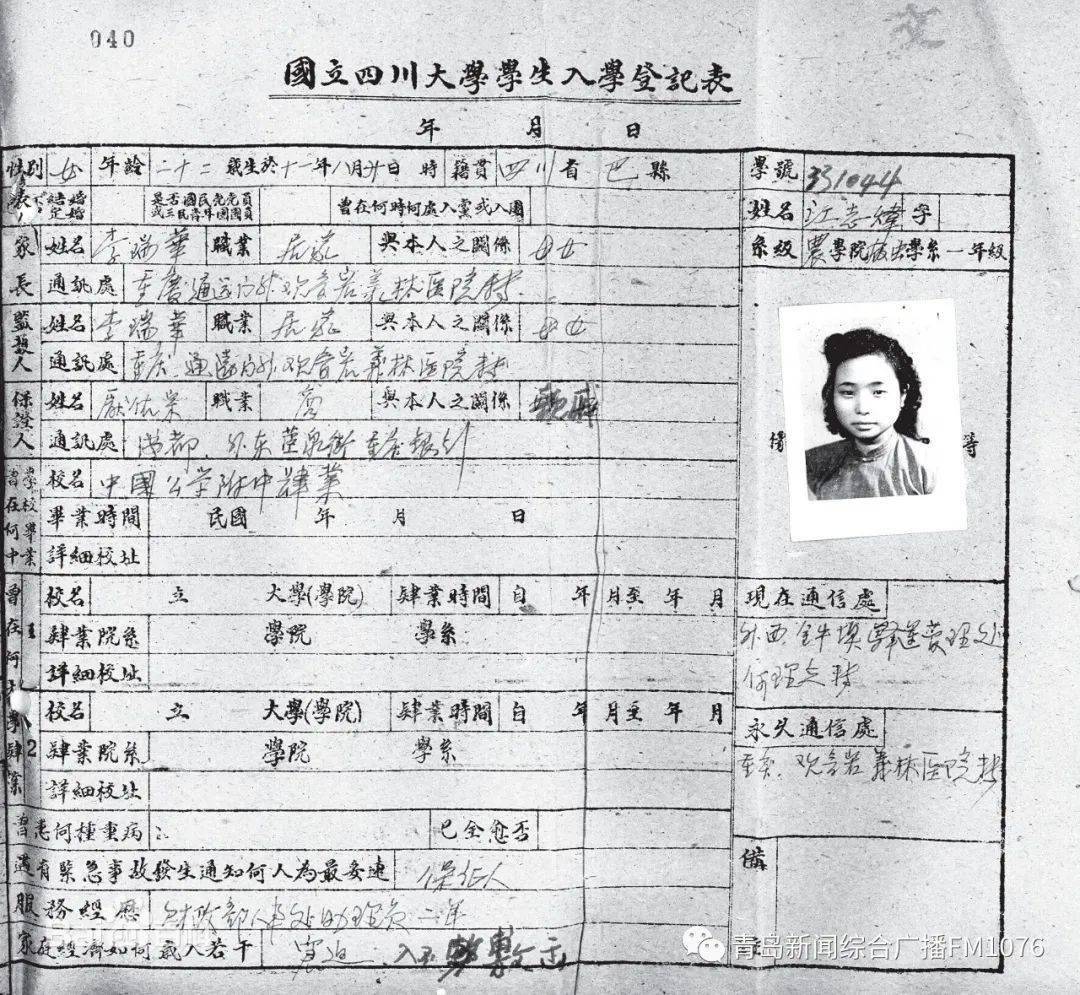 040
國立四川大學學生入學登記表
年 月 日
性別 女 年齡 二十二 歲生於十一年八月廿日 時 籍貫 四川省巴縣
學號 331044
結婚 定婚 是否國民党党員或三民青年團團員 曾在何時何處入黨或入團
姓名 江志煒 字
家長 姓名 李瑞華 職業 居家 與本人之關係 母女
系級 農學院 學系一年級
通訊處 重慶通远门外观音岩義林医院转
監護人 姓名 李瑞華 職業 居家 與本人之關係 母女
通訊處 重慶 通遠门外观音岩義林医院转
保證人 姓名 職業 商 與本人之關係 親戚
通訊處 成都 外东 重慶銀行
曾在何中學校畢業 校名 中國公学附中肄業
畢業時間 民國 年 月 日
詳細校址
曾在何大學肄業
1 校名 立 大學(學院) 肄業時間 自 年 月至 年 月
肄業院系 學院 學系
詳細校址
2 校名 立 大學(學院) 肄業時間 自 年 月至 年 月
肄業院系 學院 學系
詳細校址
現在通信處
外西 管理处
转
永久通信處
重慶 观音岩義林医院转
曾患何種重病 已全愈否
遇有緊急事故發生通知何人為最妥速 保证人
服務經歷 财政部人事处助理员二年
家庭經濟如何歲入若干 窘迫 入不敷
備
等
青岛新闻综合广播FM1076